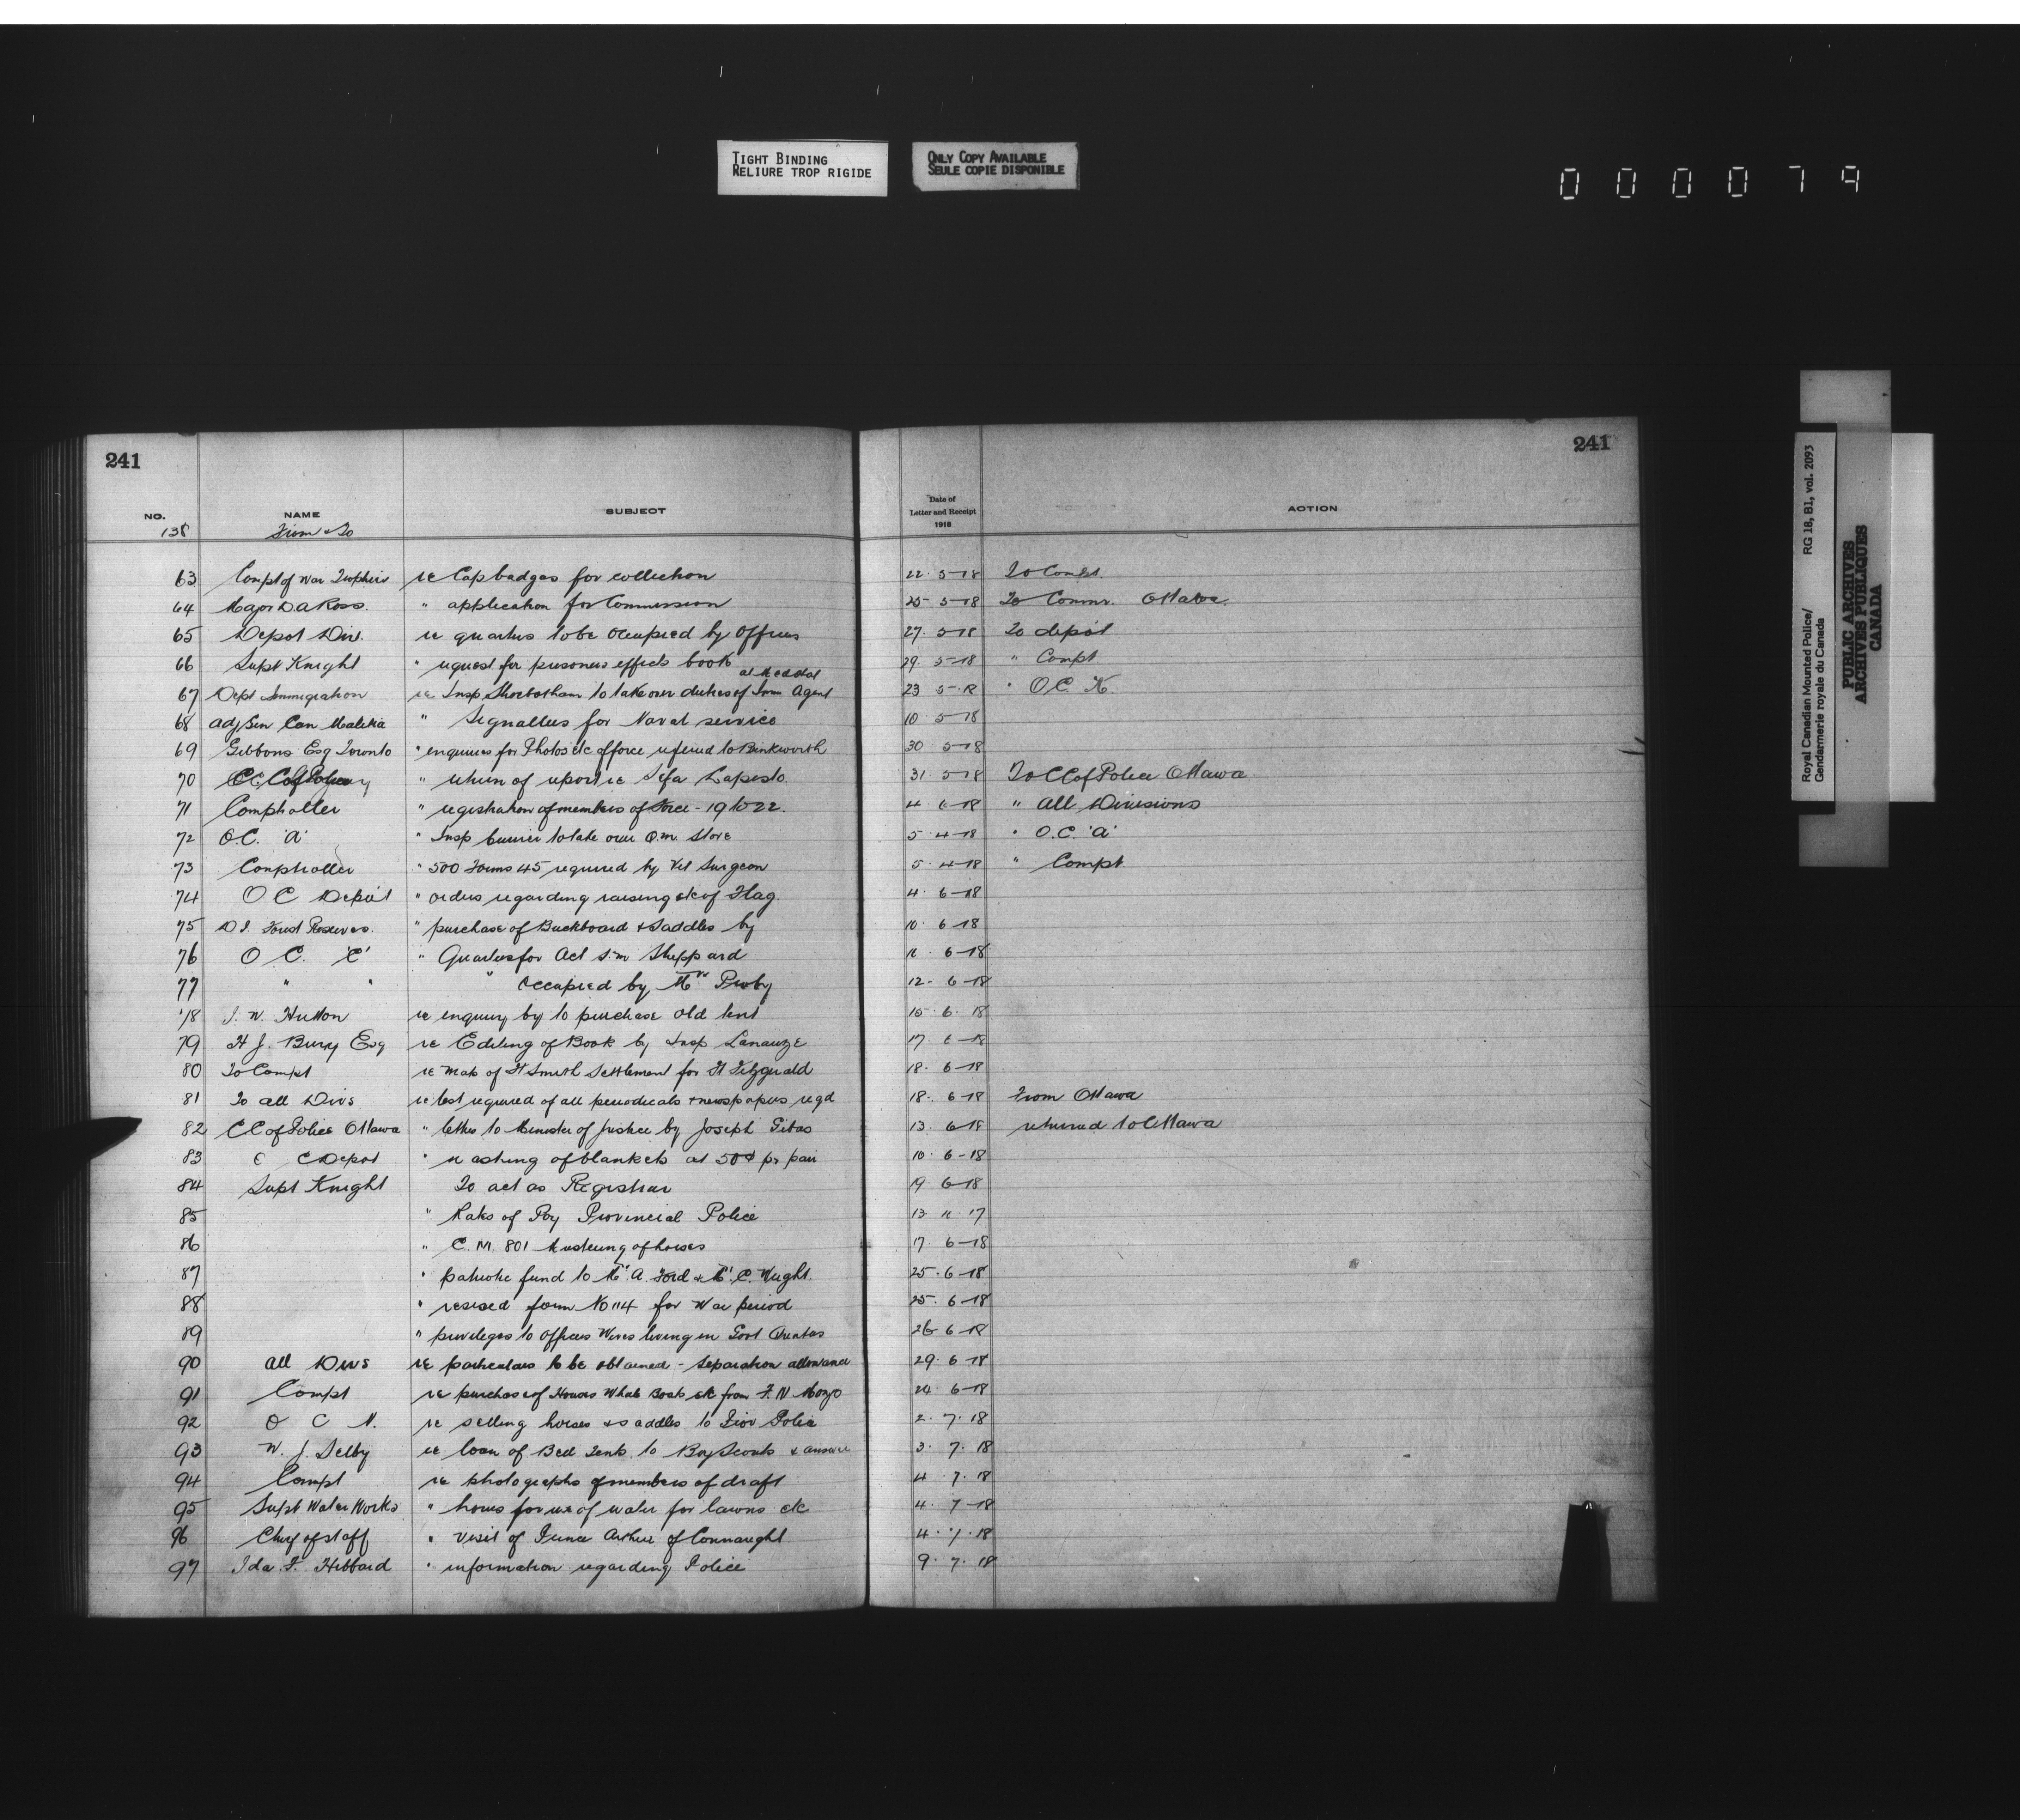 TIGHT BINDING
RELIURE TROP RIGIDE
ONLY COPY AVAILABLE
SEULE COPIE DISPONIBLE
000079
241
241
NO. NAME SUBJECT Date of Letter and Receipt 1918 ACTION
138 From & To
63 Compt of War Trophies re Cap badges for collection 22. 5-18 To Compt.
64 Major D.A Ross. " application for Commission 25 5-18 To Commr. Ottawa.
65 Depot Div. re quarters to be occupied by Officers 27. 5-18 To depot
66 Supt Knight " request for prisoners effects book 29. 5-18 " Compt
67 Dept Immigration re Insp Shoebotham to take over duties of Imm Agent 23 5-18 " O.C. K.
68 Adj Gen Can Malitia " Signallers for Naval service 10. 5-18
69 Gibbons Esq Toronto " enquiries for Photos etc of force refered to Binkworth 30 5-18
70 " return of report re 31 5-18 To CC of Police Ottawa
71 Comptroller " registration of members of Force - 19 to 22. 4 6-18 " All Divisions
72 O.C. 'A' " Insp to take over Q.m. Store 5. 4-18 " O.C. 'A'
73 Comptroller " 500 Forms 45 required by Vet Surgeon 5. 4-18 " Compt.
74 O C Depot " orders regarding raising etc of Flag 4. 6-18
75 D I. Forest Reserves. " purchase of Buckboard & Saddles by 10. 6-18
76 O C. 'C' " Quarters for Act S.m Sheppard 11. 6-18
77 " " " occupied by Mrs Proby 12- 6-18
78 J. W. Hutton re enquiry by to purchase old tent 15. 6. 18
79 H J. Bury Esq re Editing of Book by Insp Lanauze 17. 6-18
80 To Compt re Map of Ft Smith Settlement for Ft Fitzgerald 18. 6-18
81 To all Divs re list required of all periodicals & newspapers reqd 18. 6-18 From Ottawa
82 CC of Police Ottawa " letter to Minister of Justice by Joseph 13. 6-18 returned to Ottawa
83 C Depot " washing of blankets at 50¢ pr pair 10. 6-18
84 Supt Knight To act as Registrar 19 6-18
85 " Rates of Pay Provincial Police 13 11 17
86 " C. M. 801 Mustering of horses 17. 6-18
87 " patriotic fund to Mrs. A. Ford & Mrs. C. Wright. 25. 6-18
88 " revised form No 114 for War period 25. 6-18
89 " privileges to Officers Wives living in Govt Quarters 26 6-18
90 all Divs re particulars to be obtained - Separation allowance 29. 6-18
91 Compt re purchase of Houses Whale Boats etc from 24. 6-18
92 O C N. re selling horses & saddles to Prov Police 2. 7. 18
93 W. J. Selby re loan of Bell Tents to Boy Scouts & answer 3. 7. 18
94 Compt re photographs of members of draft 4 7. 18
95 Supt Water Works " hours for use of water for lawns etc 4. 7-18
96 Chief of staff " visit of Prince Arthur of Connaught 4. 7. 18
97 Ida F. Hibbard " information regarding Police 9. 7. 18
Royal Canadian Mounted Police/
Gendarmerie royale du Canada
RG 18, B1, vol. 2093
PUBLIC ARCHIVES
ARCHIVES PUBLIQUES
CANADA